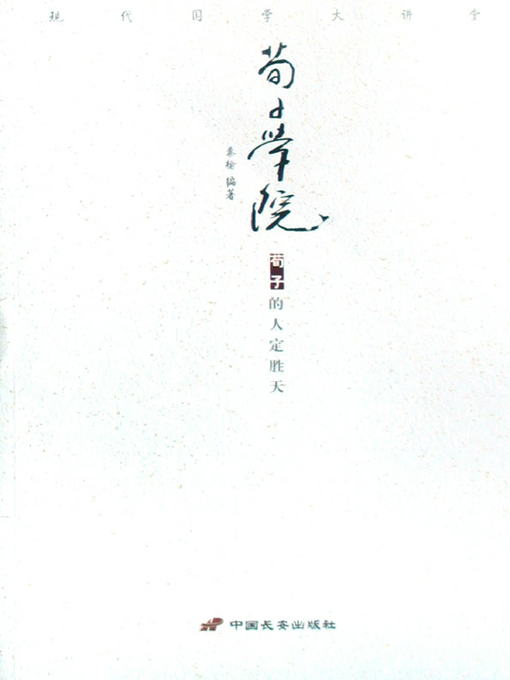 现代国学大讲堂
荀子學院
秦榆 编著
荀子的人定胜天
中国长安出版社